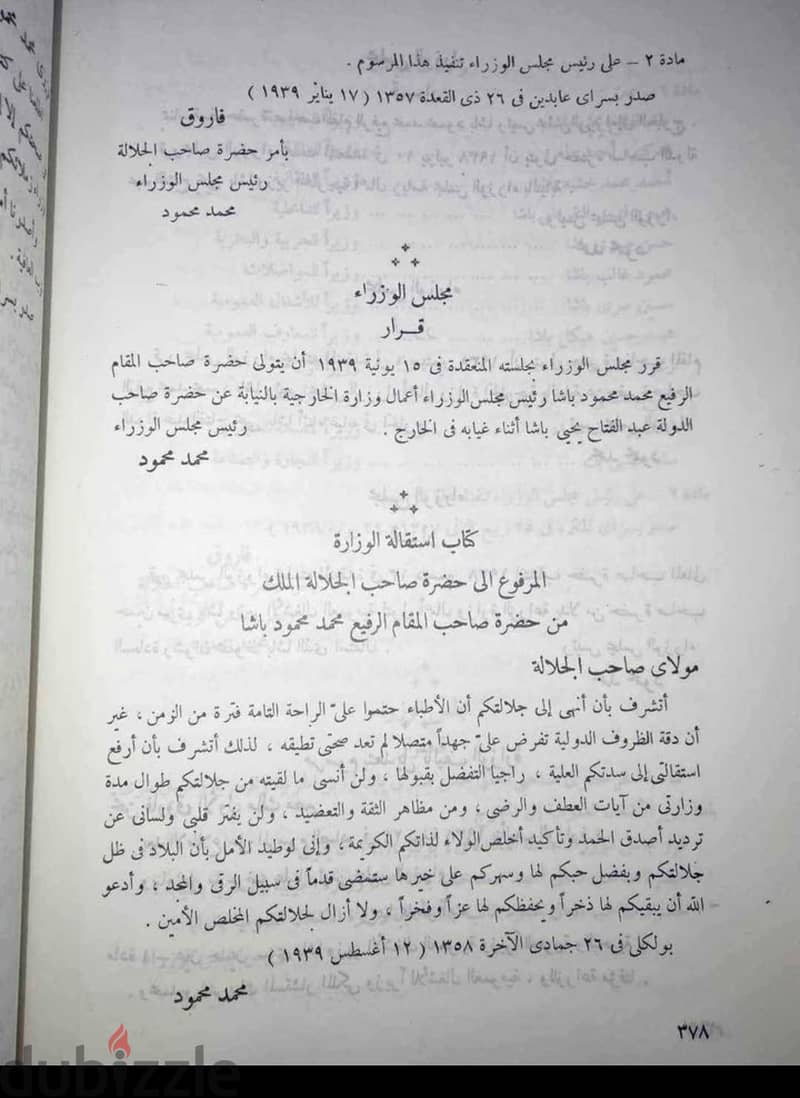 مادة ٢ – على رئيس مجلس الوزراء تنفيذ هذا المرسوم .
صدر بسراى عابدين فى ٢٦ ذى القعدة ١٣٥٧ ( ١٧ يناير ١٩٣٩ )
فاروق
بأمر حضرة صاحب الجلالة
رئيس مجلس الوزراء
محمد محمود
مجلس الوزراء
قـــرار
قرر مجلس الوزراء بجلسته المنعقدة فى ١٥ يونية ١٩٣٩ أن يتولى حضرة صاحب المقام
الرفيع محمد محمود باشا رئيس مجلس الوزراء أعمال وزارة الخارجية بالنيابة عن حضرة صاحب
الدولة عبد الفتاح يحيى باشا أثناء غيابه فى الخارج .
رئيس مجلس الوزراء
محمد محمود
كتاب استقالة الوزارة
المرفوع الى حضرة صاحب الجلالة الملك
من حضرة صاحب المقام الرفيع محمد محمود باشا
مولاى صاحب الجلالة
أتشرف بأن أنهى إلى جلالتكم أن الأطباء حتموا علىّ الراحة التامة فترة من الزمن ، غير
أن دقة الظروف الدولية تفرض علىّ جهداً متصلا لم تعد صحتى تطيقه ، لذلك أتشرف بأن أرفع
استقالتى إلى سدتكم العلية ، راجيا التفضل بقبولها ، ولن أنسى ما لقيته من جلالتكم طوال مدة
وزارتى من آيات العطف والرضى ، ومن مظاهر الثقة والتعضيد ، ولن يفتر قلبى ولسانى عن
ترديد أصدق الحمد وتأكيد أخلص الولاء لذاتكم الكريمة ، وإنى لوطيد الأمل بأن البلاد فى ظل
جلالتكم وبفضل حبكم لها وسهركم على خيرها ستمضى قدماً فى سبيل الرقى والمجد ، وأدعو
الله أن يبقيكم لها ذخراً ويحفظكم لها عزاً وفخراً ، ولا أزال لجلالتكم المخلص الأمين .
بولكلى فى ٢٦ جمادى الآخرة ١٣٥٨ ( ١٢ أغسطس ١٩٣٩ )
محمد محمود
٣٧٨
dubizzle